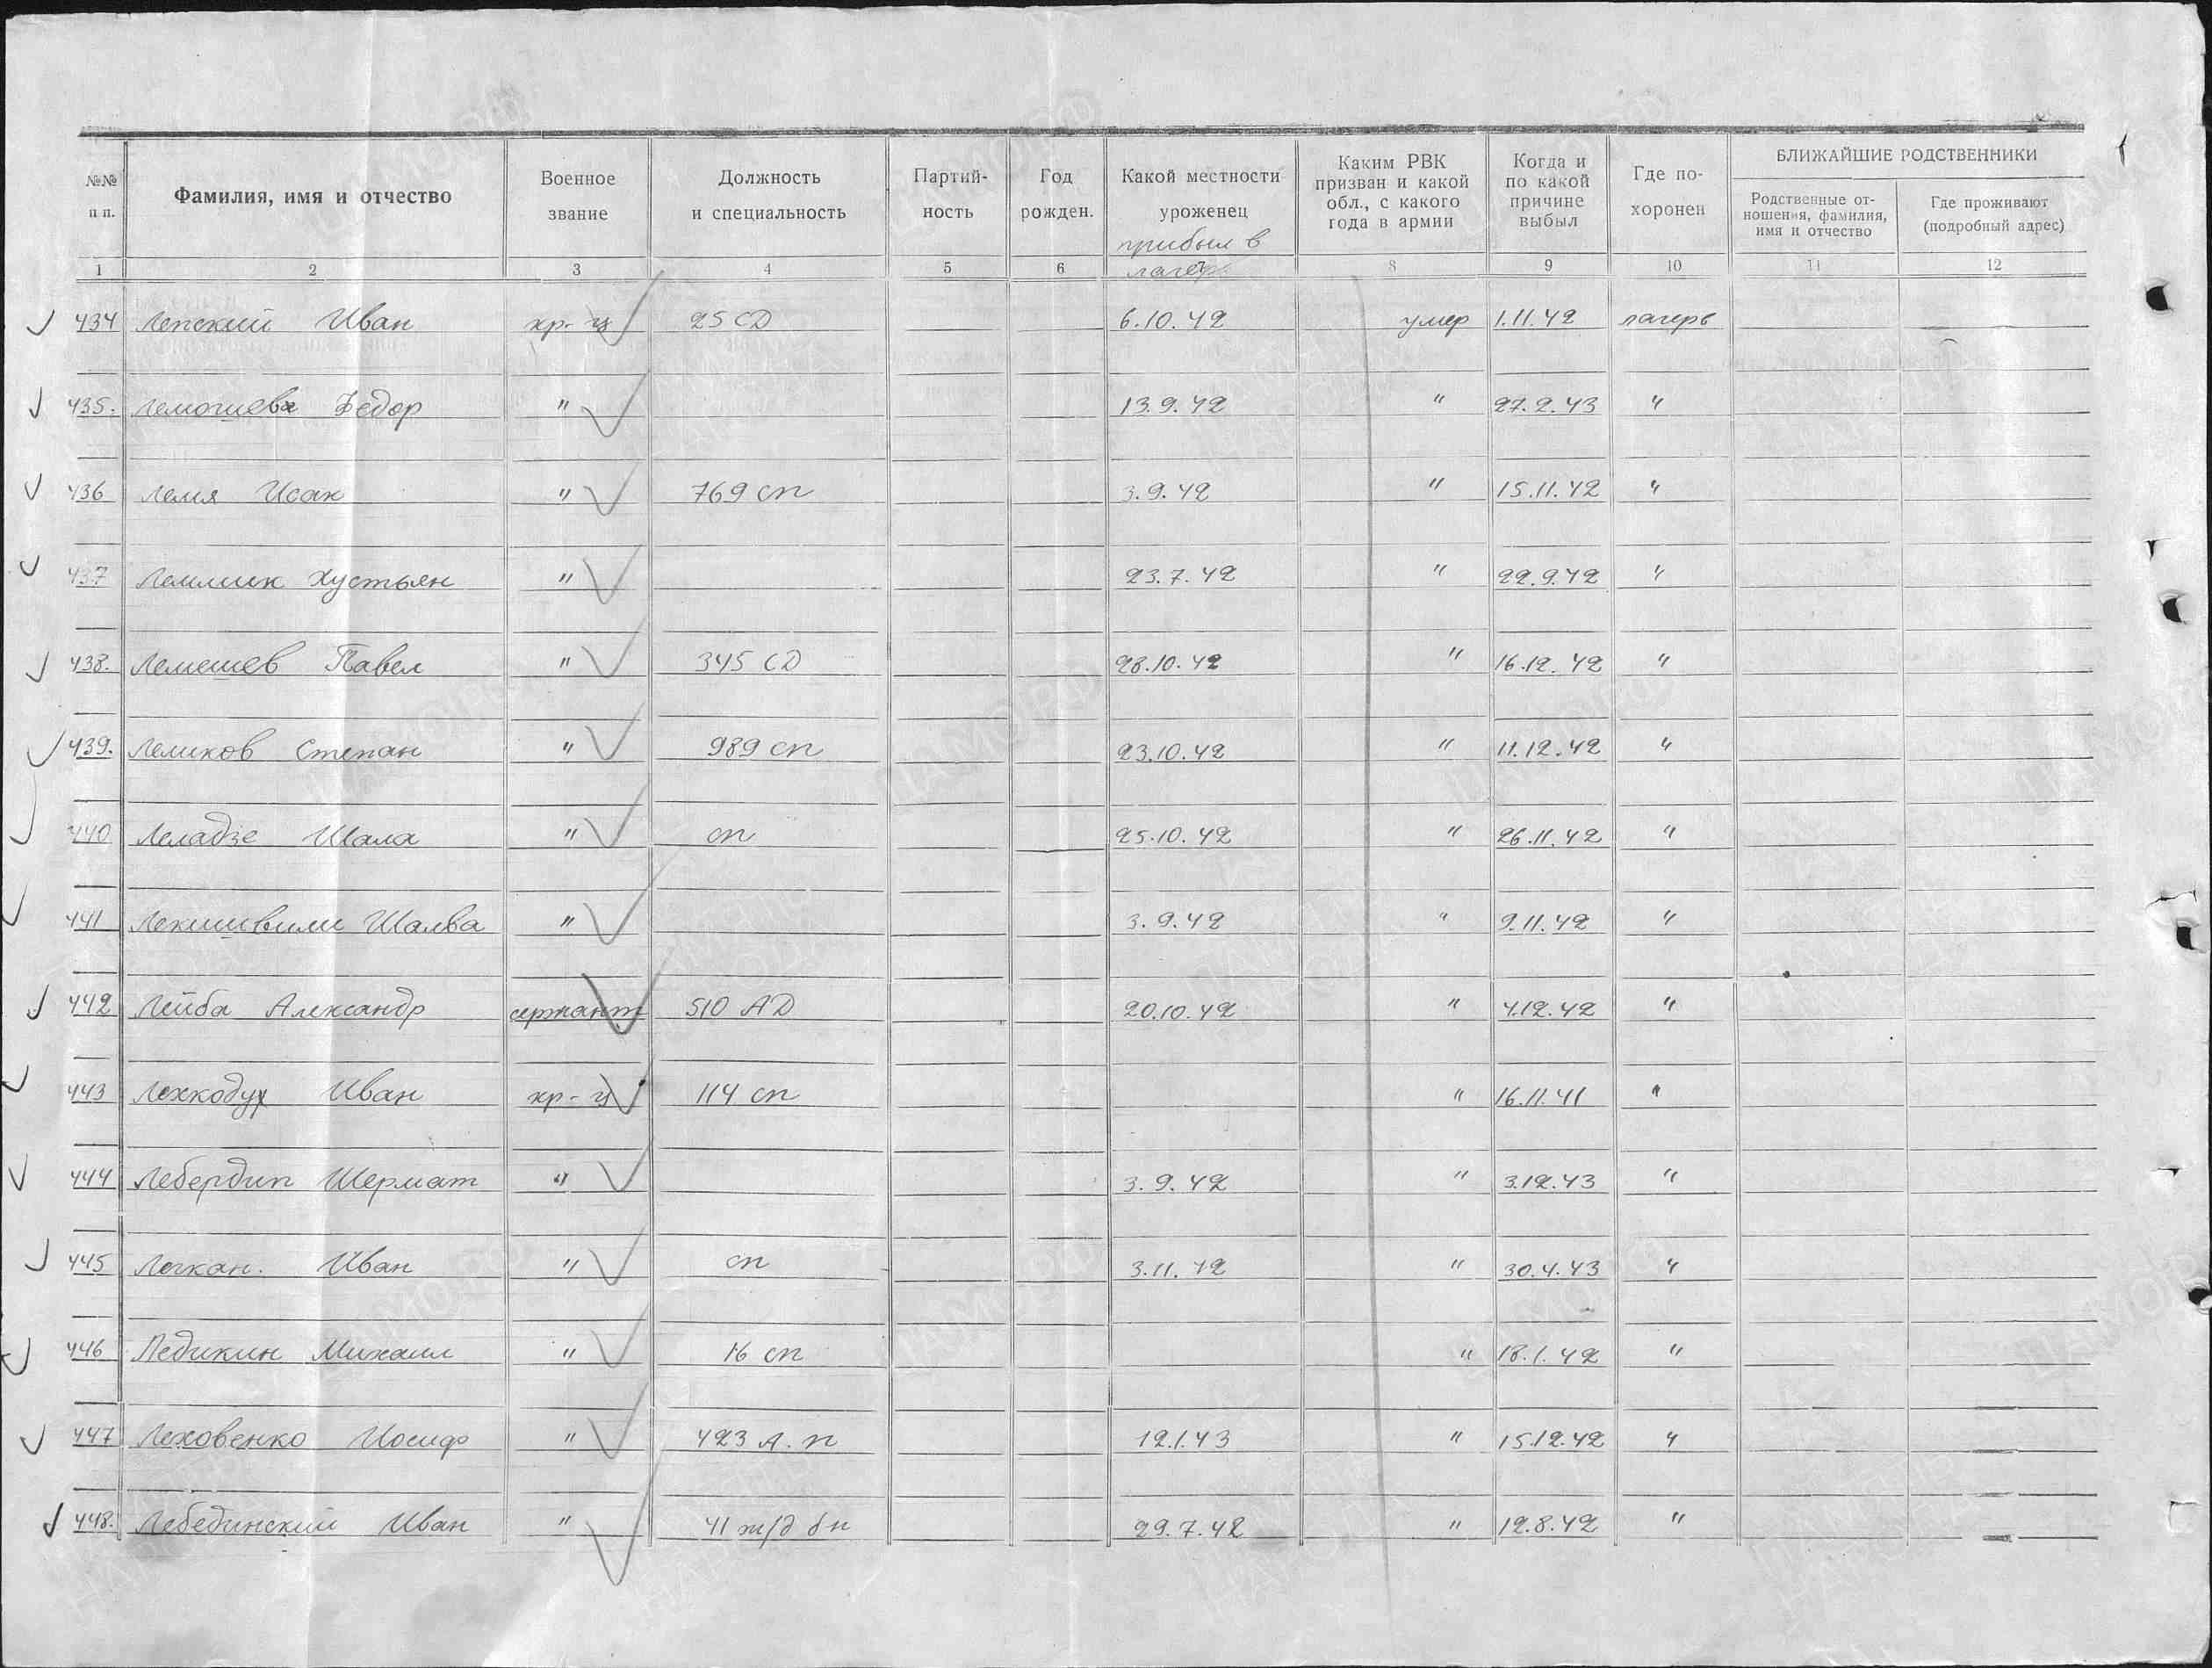 БЛИЖАЙШИЕ РОДСТВЕННИКИ
№№ п п. Фамилия, имя и отчество Военное звание Должность и специальность Партий-ность Год рожден. Какой местности уроженец Каким РВК призван и какой обл., с какого года в армии Когда и по какой причине выбыл Где по-хоронен Родственные от-ношения, фамилия, имя и отчество Где проживают (подробный адрес)
прибыл в лагерь
1 2 3 4 5 6 7 8 9 10 11 12
434 Лепский Иван кр-ц 25 СД 6.10.42 умер 1.11.42 лагерь
435. Федор " 13.9.42 " 27.2.43 "
436 Лемя Исак " 769 сп 3.9.42 " 15.11.42 "
437 Лемлик Хустьян " 23.7.42 " 22.9.42 "
438. Лемешев Павел " 345 СД 28.10.42 " 16.12.42 "
439. Лемков Степан " 989 сп 23.10.42 " 11.12.42 "
440 Леладзе Шала " сп 25.10.42 " 26.11.42 "
441 Лекишвили Шалва " 3.9.42 " 9.11.42 "
442 Лейба Александр сержант 510 АД 20.10.42 " 4.12.42 "
443 Лехкодух Иван кр-ц 114 сп " 16.11.41 "
444 Лебердип Шермат " 3.9.42 " 3.12.43 "
445 Легкан. Иван " сп 3.11.42 " 30.4.43 "
446 Ледикин Михаил " 16 сп " 18.1.42 "
447 Леховенко Иосиф " 423 А.п 12.1.43 " 15.12.42 "
448. Лебединский Иван " 41 ж/д бн 29.7.42 " 12.8.42 "